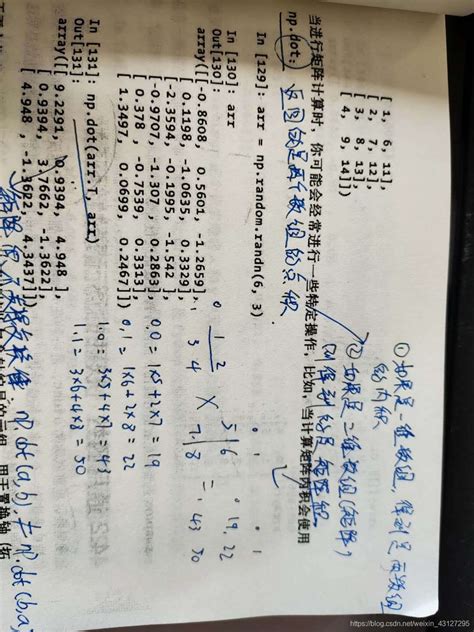 [ 1, 6, 11],
[ 2, 7, 12],
[ 3, 8, 13],
[ 4, 9, 14]])
① 如果是一维数组，得到是两数组的内积
② 如果是二维数组(矩阵)
则得到的是矩阵积
当进行矩阵计算时，你可能会经常进行一些特定操作，比如，当计算矩阵内积会使用
np.dot:
返回的是两个数组的点积
In [129]: arr = np.random.randn(6, 3)
In [130]: arr
Out[130]:
array([[-0.8608, 0.5601, -1.2659],
[ 0.1198, -1.0635, 0.3329],
[-2.3594, -0.1995, -1.542 ],
[-0.9707, -1.307 , 0.2863],
[ 0.378 , -0.7539, 0.3313],
[ 1.3497, 0.0699, 0.2467]])
0 1
1 2
3 4
×
5 6
7 8
=
19 22
43 50
0.0 = 1×5+2×7 = 19
0.1 = 1×6+2×8 = 22
1.0 = 3×5+4×7 = 43
1.1 = 3×6+4×8 = 50
In [131]: np.dot(arr.T, arr)
Out[131]:
array([[ 9.2291, 0.9394, 4.948 ],
[ 0.9394, 3.7662, -1.3622],
[ 4.948 , -1.3622, 4.3437]])
np.dot(a,b) ≠ np.dot(b,a)
用于置换轴
https://blog.csdn.net/weixin_43127295